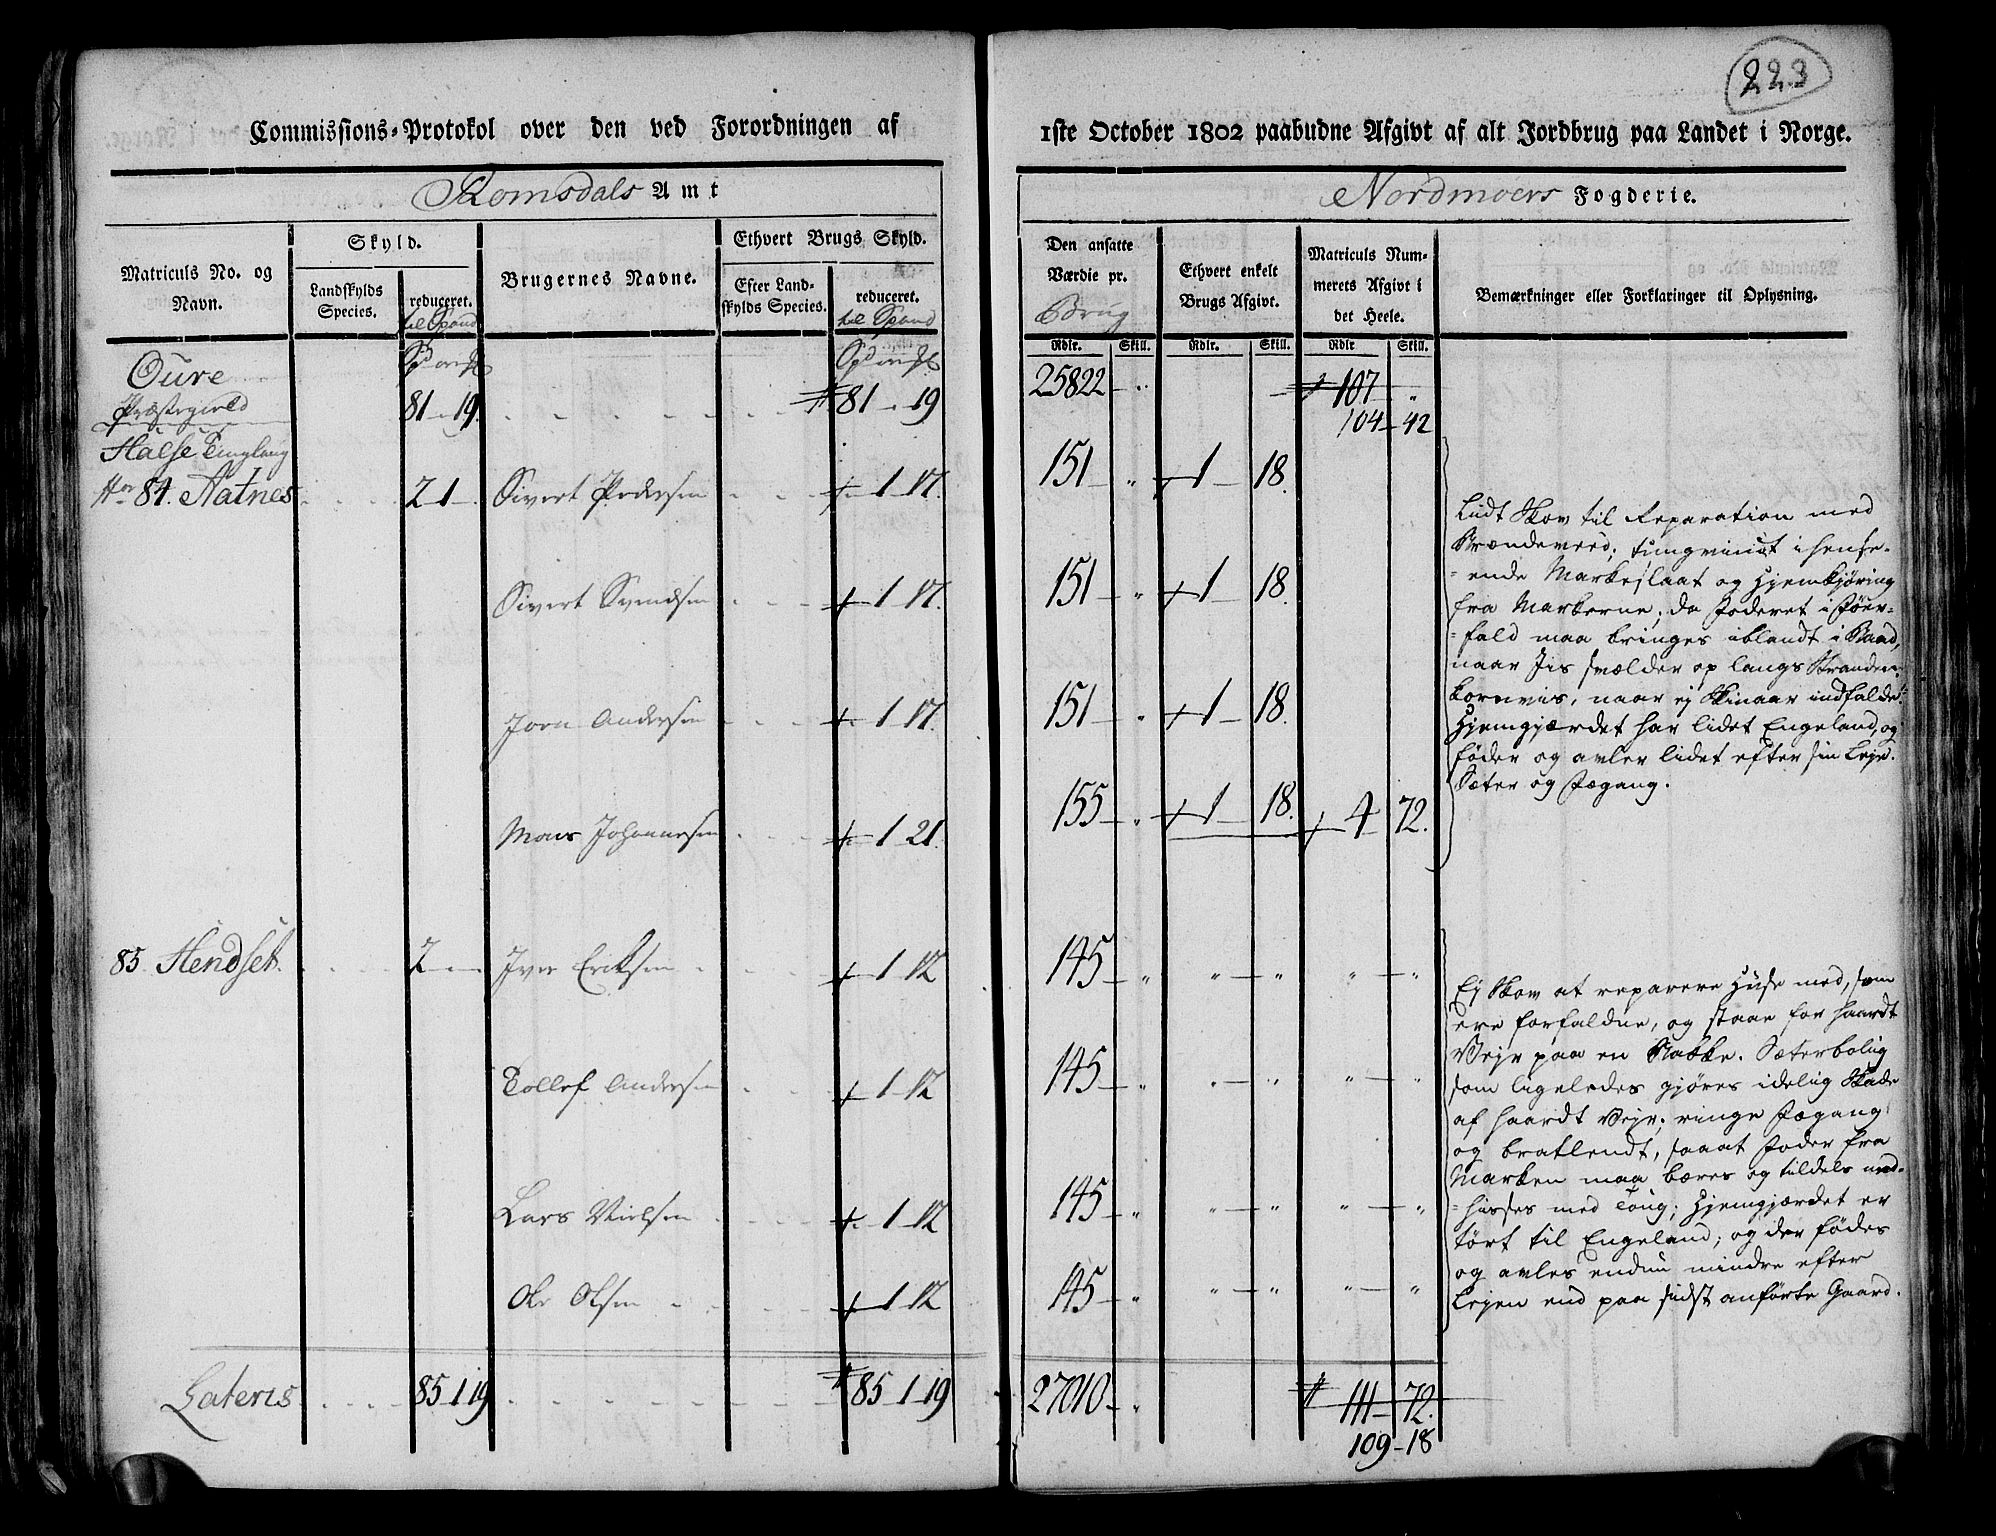 223
Commissions-Protokol over den ved Forordningen af 1ste October 1802 paabudne Afgivt af alt Jordbrug paa Landet i Norge.
Romsdals Amt
Nordmoers Fogderie.
Matriculs No. og Navn.
Skyld.
Landskylds Species.
reduceret. til Spand
Brugernes Navne.
Ethvert Brugs Skyld.
Efter Landskylds Species.
reduceret. til Spand
Den ansatte Værdie pr. Brug
Ethvert enkelt Brugs Afgivt.
Matriculs Nummerets Afgivt i det Heele.
Bemærkninger eller Forklaringer til Oplysning.
Rdlr. Skill. Rdlr. Skill. Rdlr Skill.
Oure
Præstegield 81 - 19. 81 - 19 25822 - " 107 - "
104 - 42
Halse Tinglaug
84. Aatnes 2 1 - Sivert Pedersen 1 17. 151 - " 1 18.
Sivert Svendsen 1 17. 151 - " 1 18.
Jorn Andersen 1 17. 151 - " 1 18.
Mons Johannesen 1 21. 155 - " 1 18. 4 72.
Lidt Skov til Reparation med
Brændeveed; tungvindt i hense-
ende Markeslaat og Hjemkjøring
fra Markerne; da Foderet i
fald maa bringes iblandt i Baad,
naar Iis vælder op langs Stranden.
Kornvis, naar ej Skinaar indfalder.
Hjemgjærdet har lidet Engeland, og
føder og avler lidet efter sin Leje.
Sæter og Fægang.
85. Hendset. 2 - - Iver Eriksen 1 12 145 - " " - " " - "
Tollef Andersen 1 12 145 - " " - " " - "
Lars Nielsen 1 12 145 - " " - " " - "
Ole Olsen 1 12 145 - " " - " " - "
Ej Skov at reparere Huse med, som
ere forfaldne, og staae for haardt
Vejr paa en Bakke. Sæterbolig
som ligeledes gjøres idelig Skade
af haardt Vejr; ringe Fægang
og bratlendt, saaat Foder fra
Marken maa bæres og tildels ned-
hisses med Toug; Hjemgjærdet er
tört til Engeland; og der fødes
og avles endnu mindre efter
Lejen end paa sidst anførte Gaard.
Lateris 85 1 19 85 1 19 27010 - " 111 - 72.
109 - 18